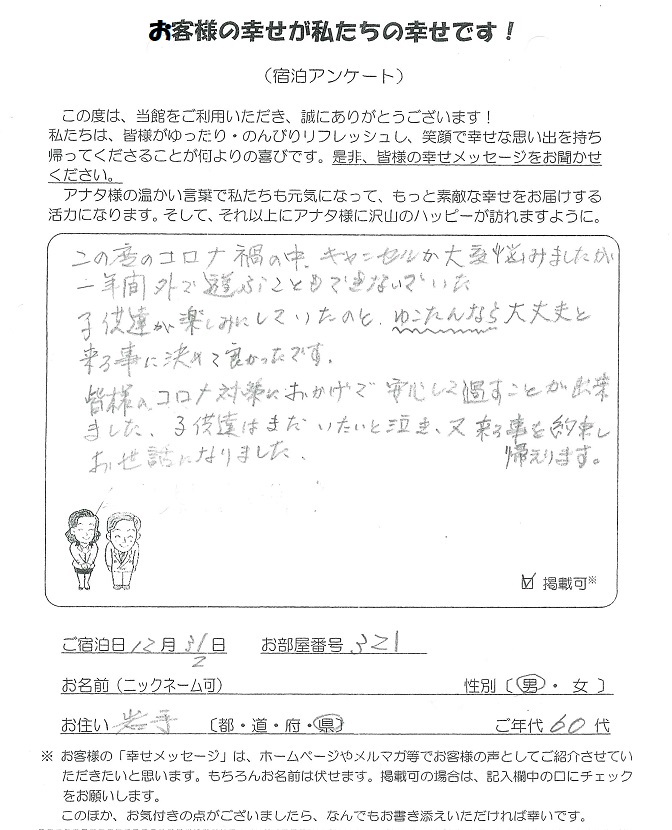 お客様の幸せが私たちの幸せです！
（宿泊アンケート）
この度は、当館をご利用いただき、誠にありがとうございます！
私たちは、皆様がゆったり・のんびりリフレッシュし、笑顔で幸せな思い出を持ち
帰ってくださることが何よりの喜びです。是非、皆様の幸せメッセージをお聞かせ
ください。
アナタ様の温かい言葉で私たちも元気になって、もっと素敵な幸せをお届けする
活力になります。そして、それ以上にアナタ様に沢山のハッピーが訪れますように。
この度のコロナ禍の中、キャンセルか大変悩みましたが
一年間外で遊ぶこともできないでいた
子供達が楽しみにしていたのと、ゆこたんなら大丈夫と
来る事に決めて良かったです。
皆様のコロナ対策のおかげで安心して過すことが出来
ました、子供達はまだいたいと泣き、又来る事を約束し
お世話になりました、帰えります。
☑ 掲載可※
ご宿泊日 12月 31日 お部屋番号 321
2
お名前（ニックネーム可） 性別〔男・女〕
お住い 岩手 〔都・道・府・県〕 ご年代 60 代
※ お客様の「幸せメッセージ」は、ホームページやメルマガ等でお客様の声としてご紹介させてい
ただきたいと思います。もちろんお名前は伏せます。掲載可の場合は、記入欄中の口にチェック
をお願いします。
このほか、お気付きの点がございましたら、なんでもお書き添えいただければ幸いです。